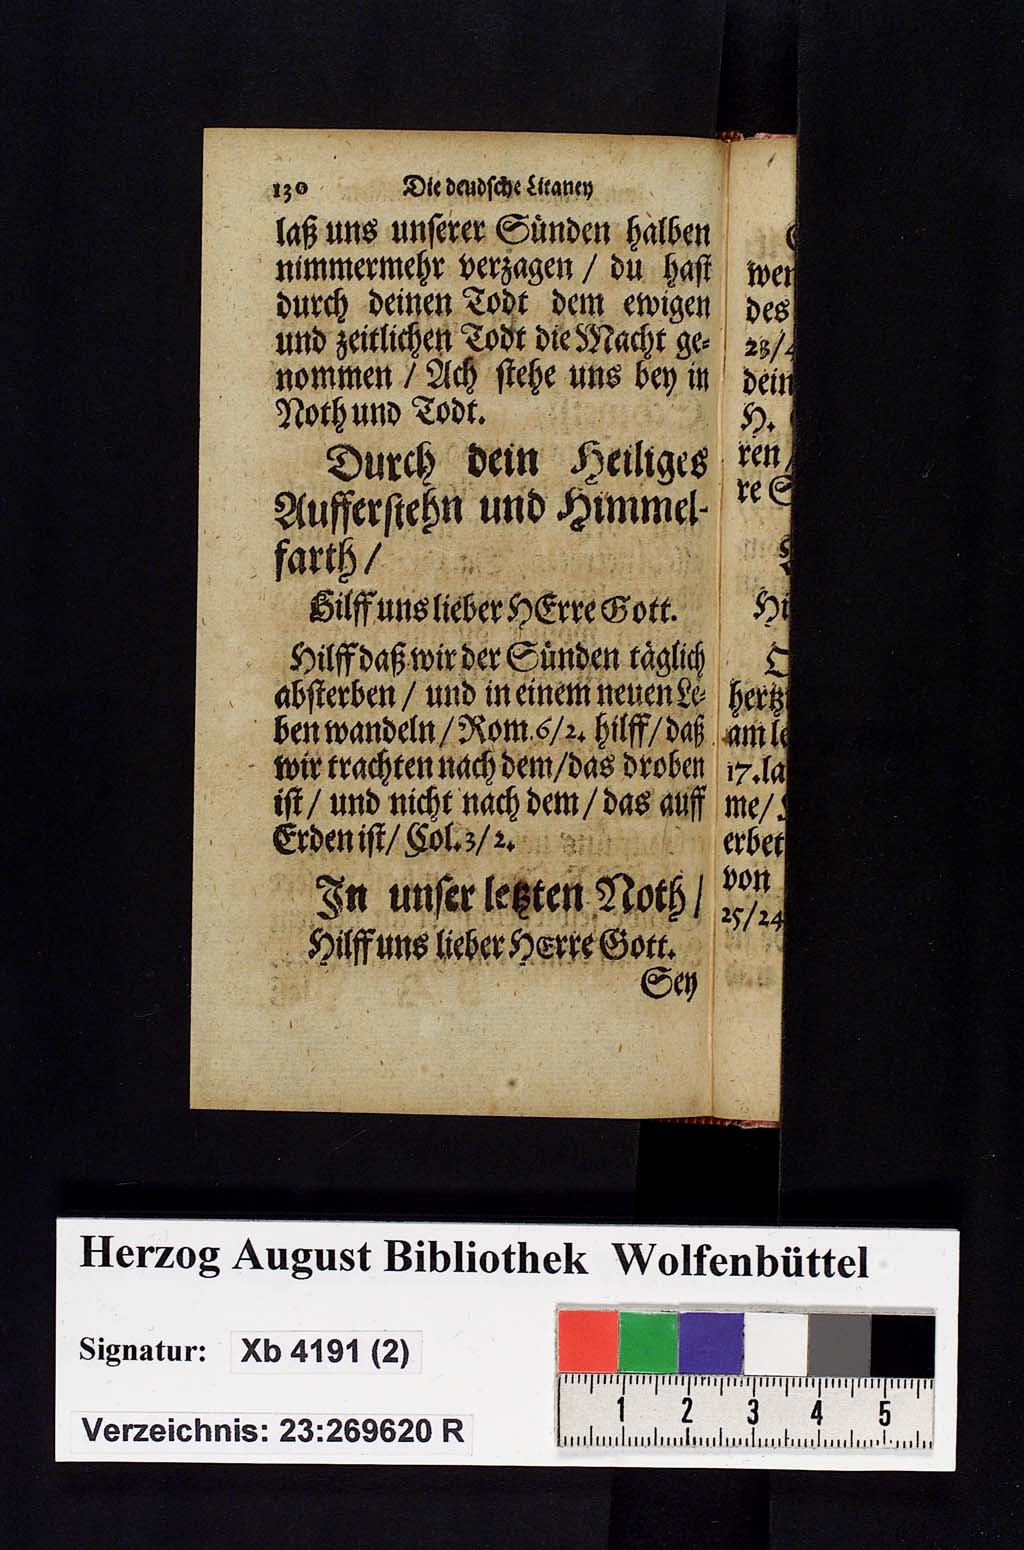 130 Die deudsche Litaney
laß uns unserer Sünden halben
nimmermehr verzagen / du hast
durch deinen Todt dem ewigen
und zeitlichen Todt die Macht ge-
nommen / Ach stehe uns bey in
Noth und Todt.
Durch dein Heiliges
Aufferstehn und Himmel-
farth /
Hilff uns lieber HErre Gott.
Hilff daß wir der Sünden täglich
absterben / und in einem neuen Le-
ben wandeln / Rom. 6/2. hilff / daß
wir trachten nach dem / das droben
ist / und nicht nach dem / das auff
Erden ist / Col. 3/2.
In unser letzten Noth /
Hilff uns lieber HErre Gott.
Sey
des
H.
ren
re
am
17.
me/
von
25/24
Herzog August Bibliothek Wolfenbüttel
Signatur: Xb 4191 (2)
Verzeichnis: 23:269620 R
1 2 3 4 5